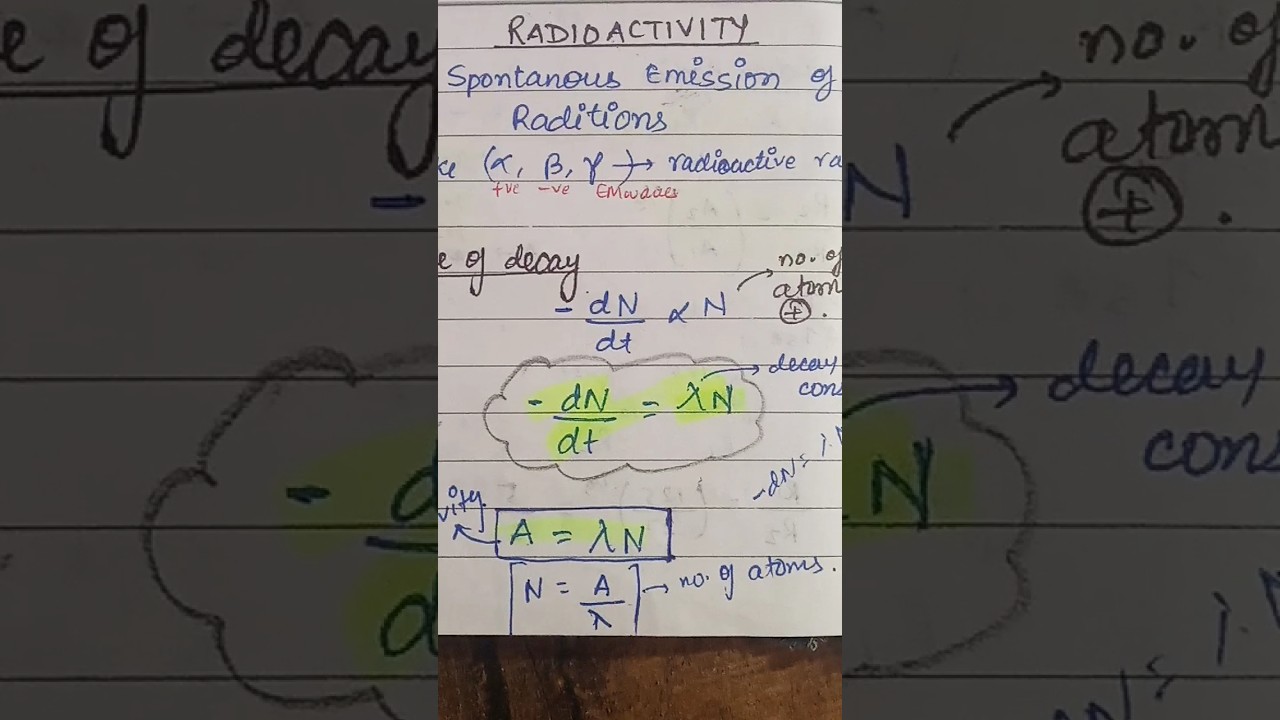 RADIOACTIVITY
Spontanous Emission of
Raditions
ce (α, β, γ → radioactive ra
+ve -ve EMwaves
e of decay
no. of
atom
⊕.
- dN/dt ∝ N
decay
cons
- dN/dt = λN
-dN =
vity.
A = λN
N = A/λ → no. of atoms.